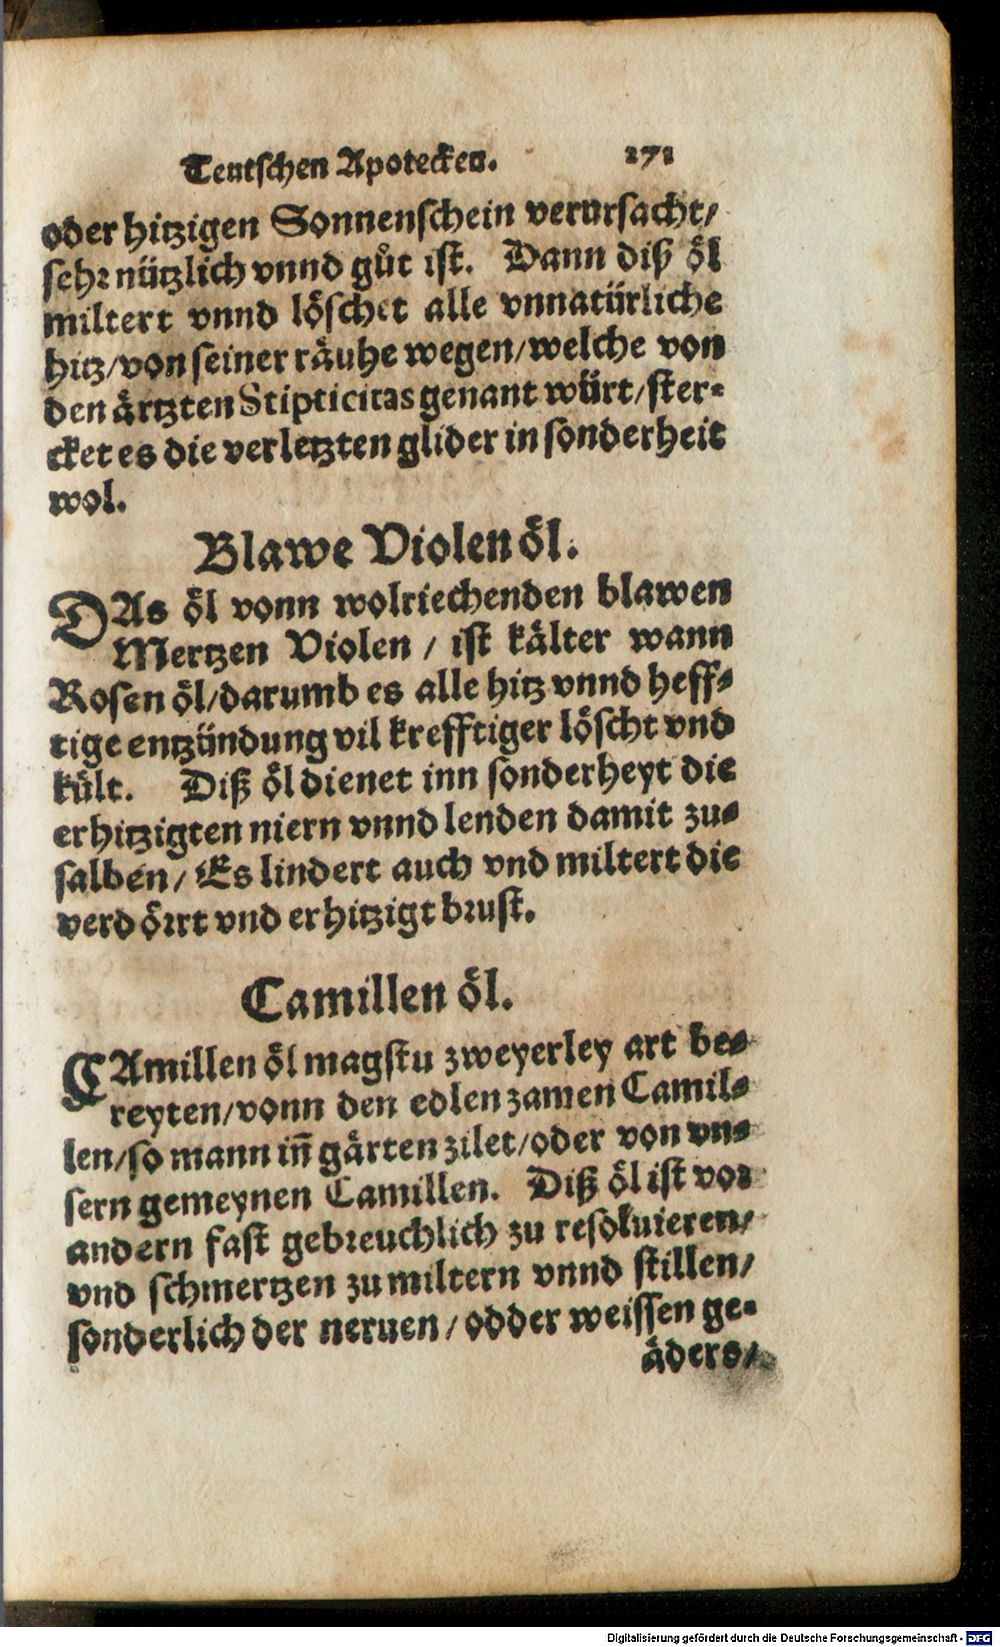 Teutschen Apotecken. 271
oder hitzigen Sonnenschein verursacht/
sehr nützlich vnnd gůt ist. Dann diß öl
miltert vnnd löschet alle vnnatürliche
hitz/von seiner räuhe wegen/welche von
den ärtzten Stipticitas genant würt/ster-
cket es die verletzten glider in sonderheit
wol.
Blawe Violen öl.
DAs öl vonn wolriechenden blawen
Mertzen Violen / ist kälter wann
Rosen öl/darumb es alle hitz vnnd heff-
tige entzündung vil krefftiger löscht vnd
kült. Diß öl dienet inn sonderheyt die
erhitzigten niern vnnd lenden damit zu-
salben/ Es lindert auch vnd miltert die
verdörrt vnd erhitzigt brust.
Camillen öl.
CAmillen öl magstu zweyerley art be-
reyten/vonn den edlen zamen Camil-
len/so mann iñ gärten zilet/oder von vn-
sern gemeynen Camillen. Diß öl ist vor
andern fast gebreuchlich zu resoluieren/
vnd schmertzen zu miltern vnnd stillen/
sonderlich der neruen/odder weissen ge-
äders/
Digitalisierung gefördert durch die Deutsche Forschungsgemeinschaft - DFG